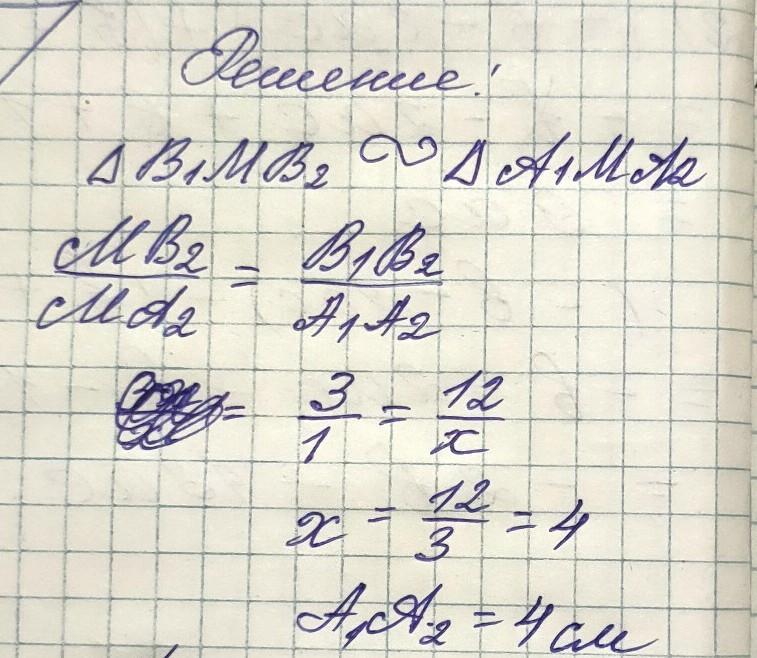 Решение:
Δ B₁MB₂ ∾ Δ A₁MA₂
MB₂/MA₂ = B₁B₂/A₁A₂
= 3/1 = 12/x
x = 12/3 = 4
A₁A₂ = 4 см